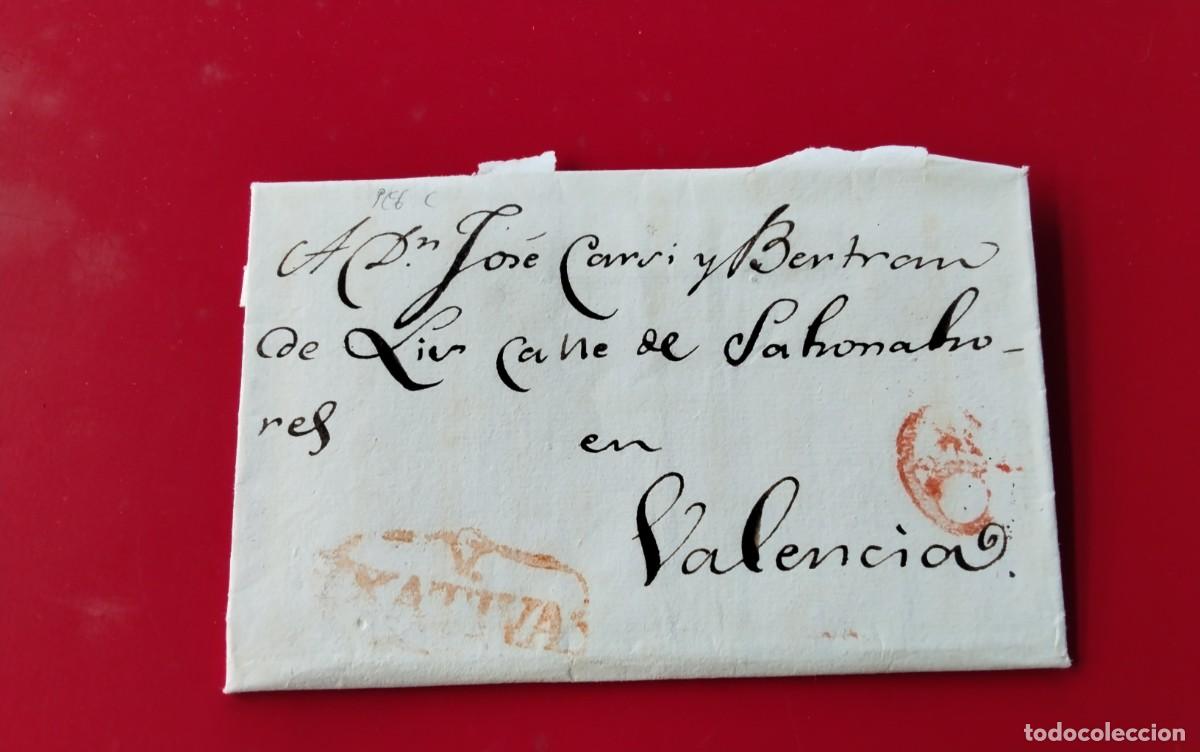 A Dn José Carsi y Bertran
de Liv calle de
res en
Valencia.
6
V
XATIVA
todocoleccion